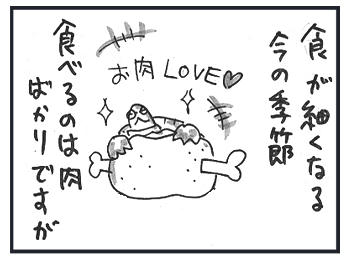 食が細くなる
今の季節
お肉LOVE♡
食べるのは肉
ばかりですが